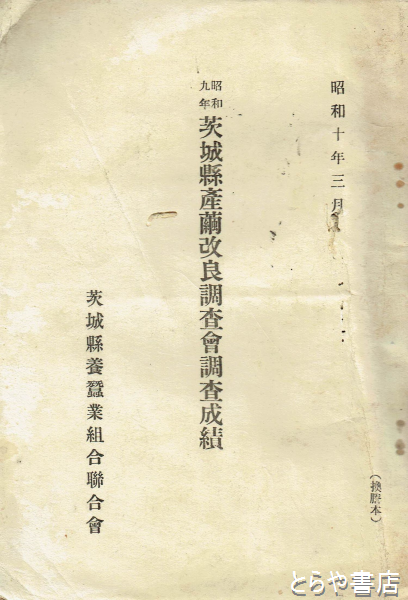 昭和十年三月
昭和九年
茨城縣產繭改良調查會調查成績
茨城縣養蠶業組合聯合會
(換謄本)
とらや書店